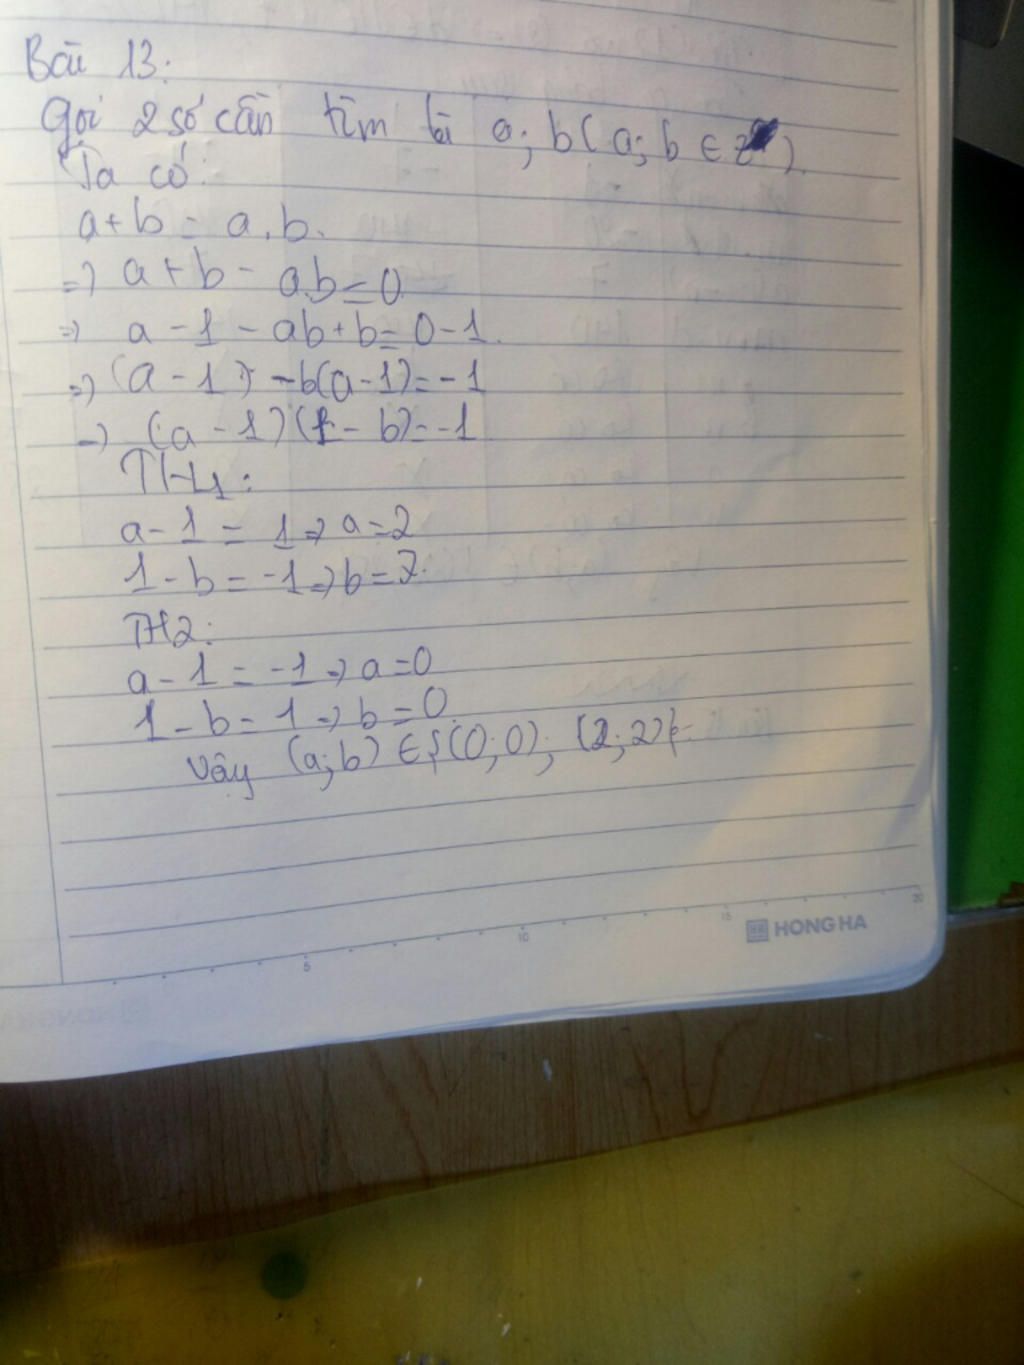 Bài 13:
Gọi 2 số cần tìm là a; b (a; b ∈ Z).
Ta có:
a + b = a . b.
=> a + b - a.b = 0
=> a - 1 - ab + b = 0 - 1.
=> (a - 1) - b(a - 1) = -1
=> (a - 1)(1 - b) = -1
TH1:
a - 1 = 1 => a = 2
1 - b = -1 => b = 2.
TH2:
a - 1 = -1 => a = 0
1 - b = 1 => b = 0.
Vậy (a; b) ∈ {(0; 0); (2; 2)}.
5 10 15 20
HONG HA